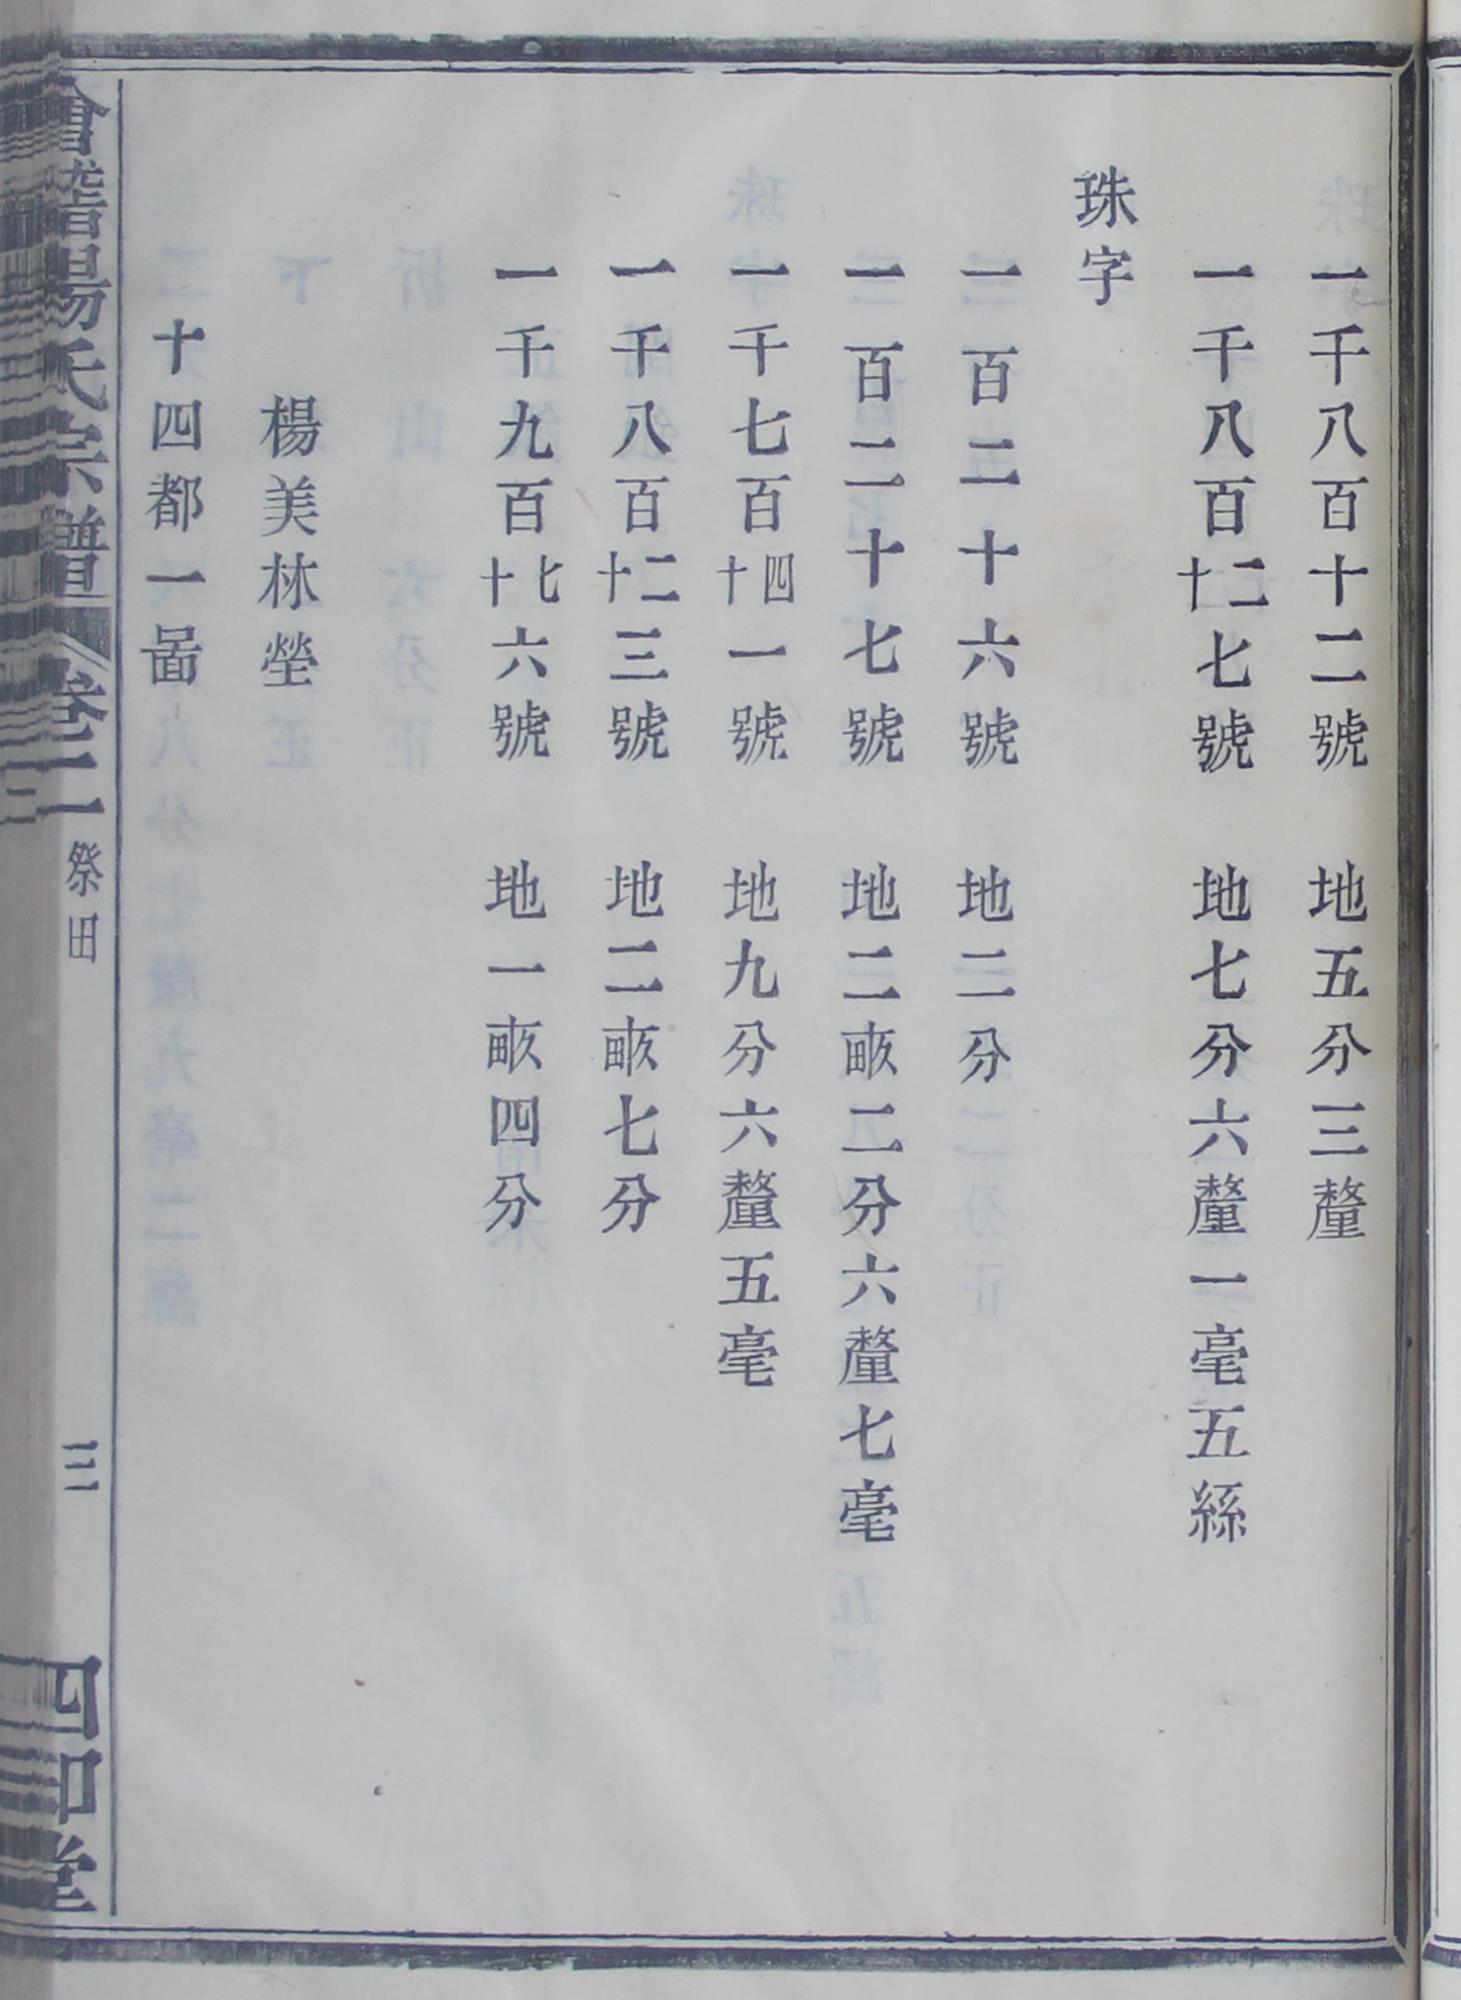 一千八百十二號　地五分三釐
一千八百二十七號　地七分六釐一毫五絲
珠字
一百二十六號　地二分
一百二十七號　地二畝二分六釐七毫
一千七百四十一號　地九分六釐五毫
一千八百二十三號　地二畝七分
一千九百七十六號　地一畝四分
楊美林塋
十四都一啚
會稽楊氏宗譜　卷二　祭田　三　四知堂